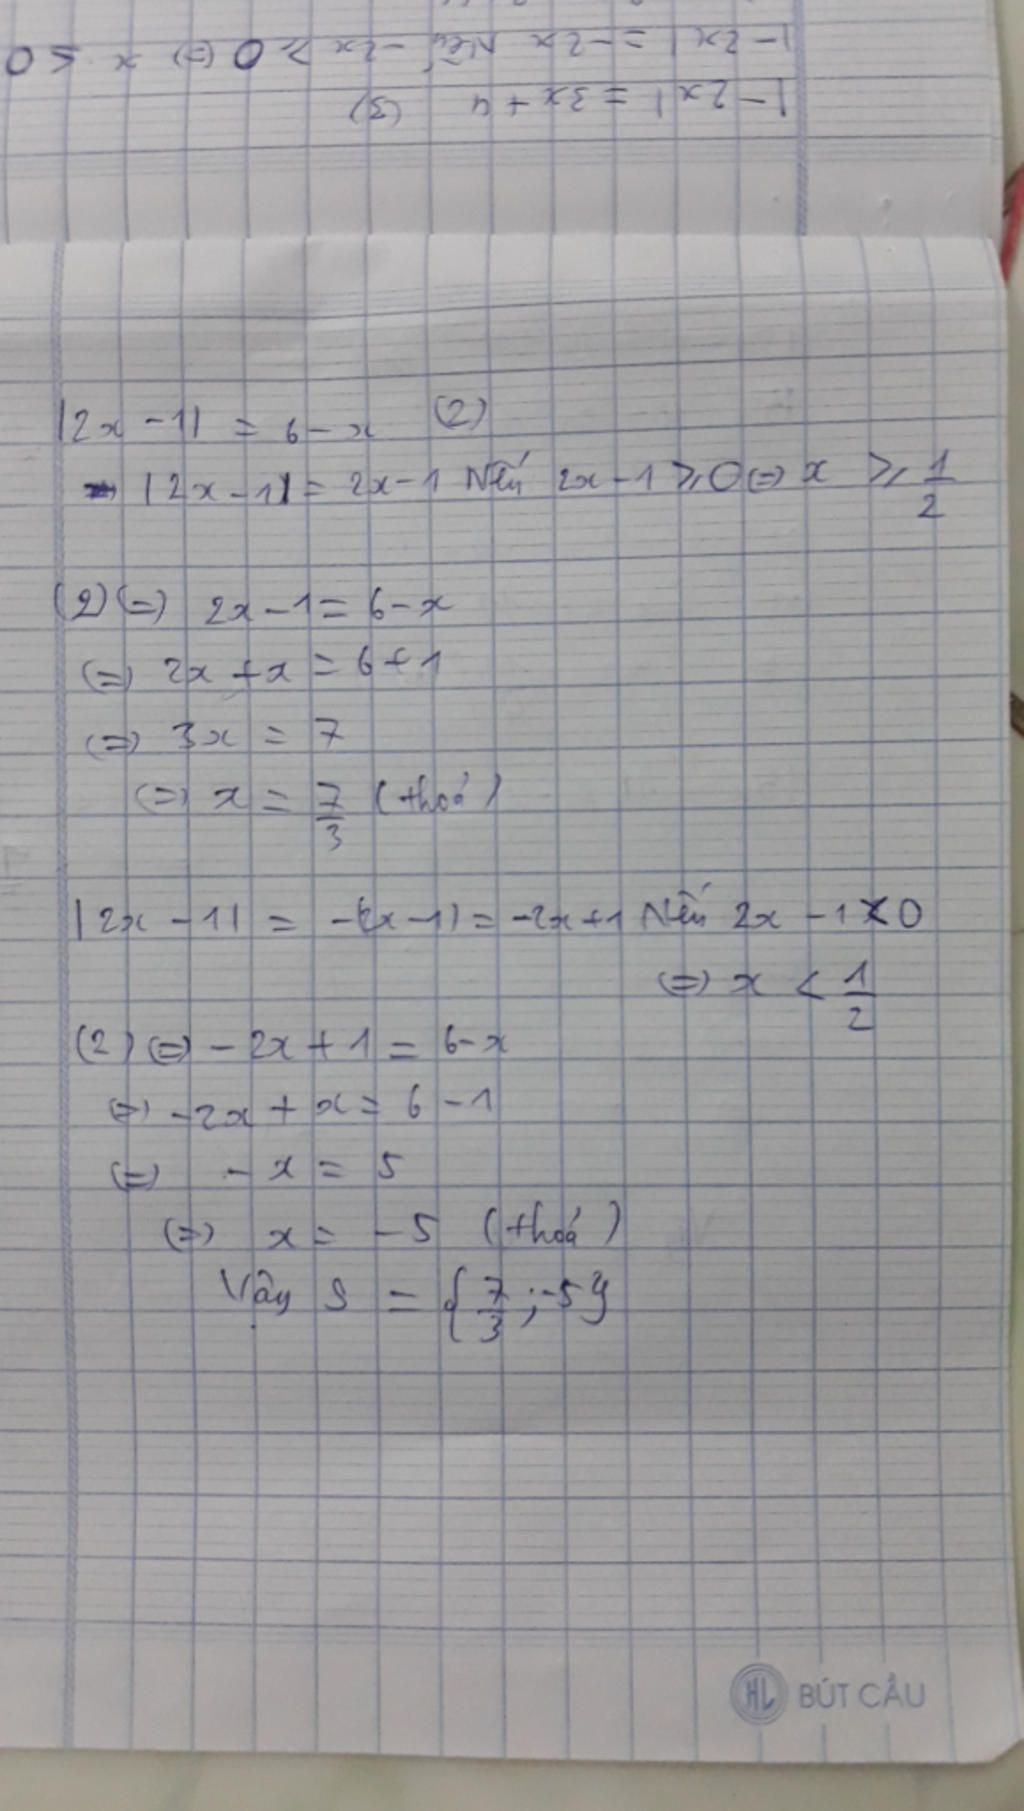 |-2x| = 3x + 4 (3)
|-2x| = -2x Nếu -2x ⩾ 0 (=) x ≤ 0
|2x - 1| = 6 - x (2)
|2x - 1| = 2x - 1 Nếu 2x - 1 ⩾ 0 (=) x ⩾ 1/2
(2) (=) 2x - 1 = 6 - x
(=) 2x + x = 6 + 1
(=) 3x = 7
(=) x = 7/3 (thoả)
|2x - 1| = -(2x - 1) = -2x + 1 Nếu 2x - 1 < 0
(=) x < 1/2
(2) (=) - 2x + 1 = 6 - x
(=) -2x + x = 6 - 1
(=) - x = 5
(=) x = - 5 (thoả)
Vậy S = {7/3 ; -5}
HL BÚT CẦU